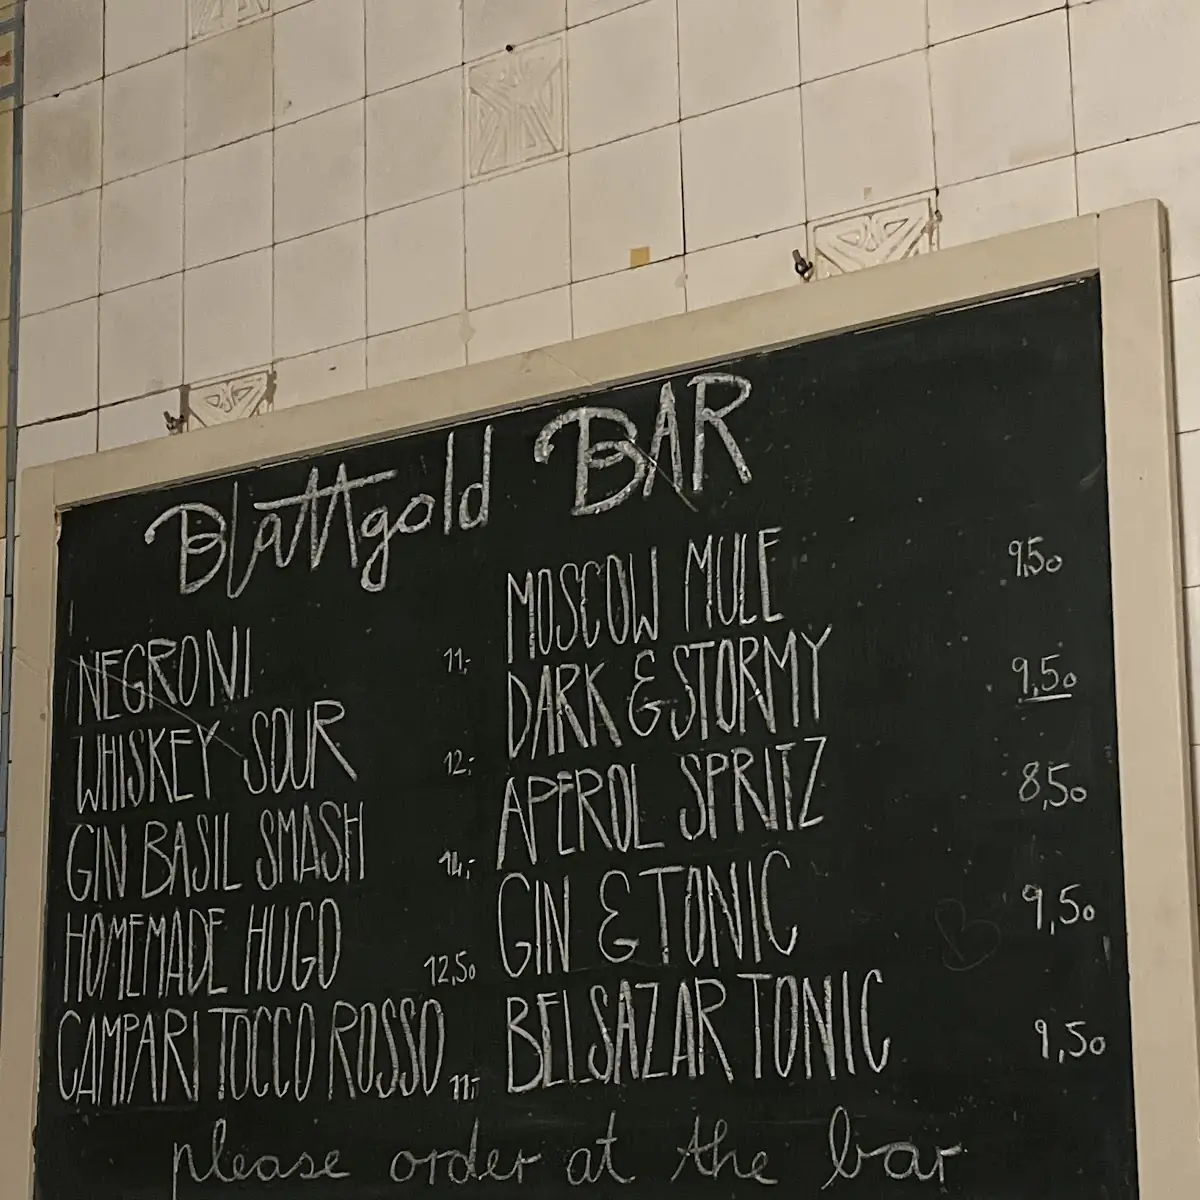 Blattgold BAR
NEGRONI 11,-
WHISKEY SOUR 12,-
GIN BASIL SMASH 14,-
HOMEMADE HUGO 12,50
CAMPARI TOCCO ROSSO 11,-
MOSCOW MULE 9,50
DARK & STORMY 9,50
APEROL SPRITZ 8,50
GIN & TONIC 9,50
BELSAZAR TONIC 9,50
please order at the bar